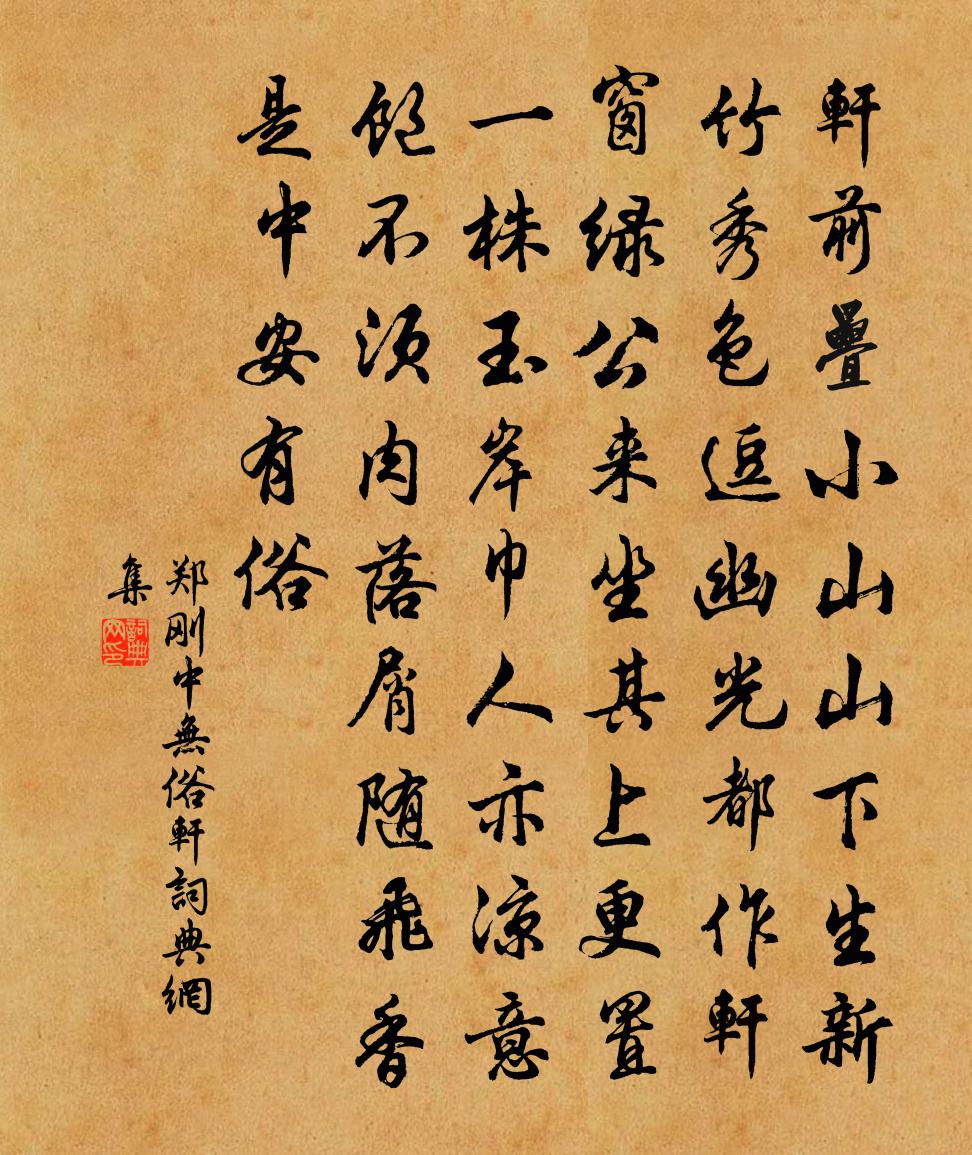 軒前疊小山山下生新
竹秀色逗幽光都作軒
窗绿公来坐其上更置
一株玉岸巾人亦凉意
飽不须肉落屑随飛香
是中安有俗
郑刚中無俗軒詞典網
集
詞典网印